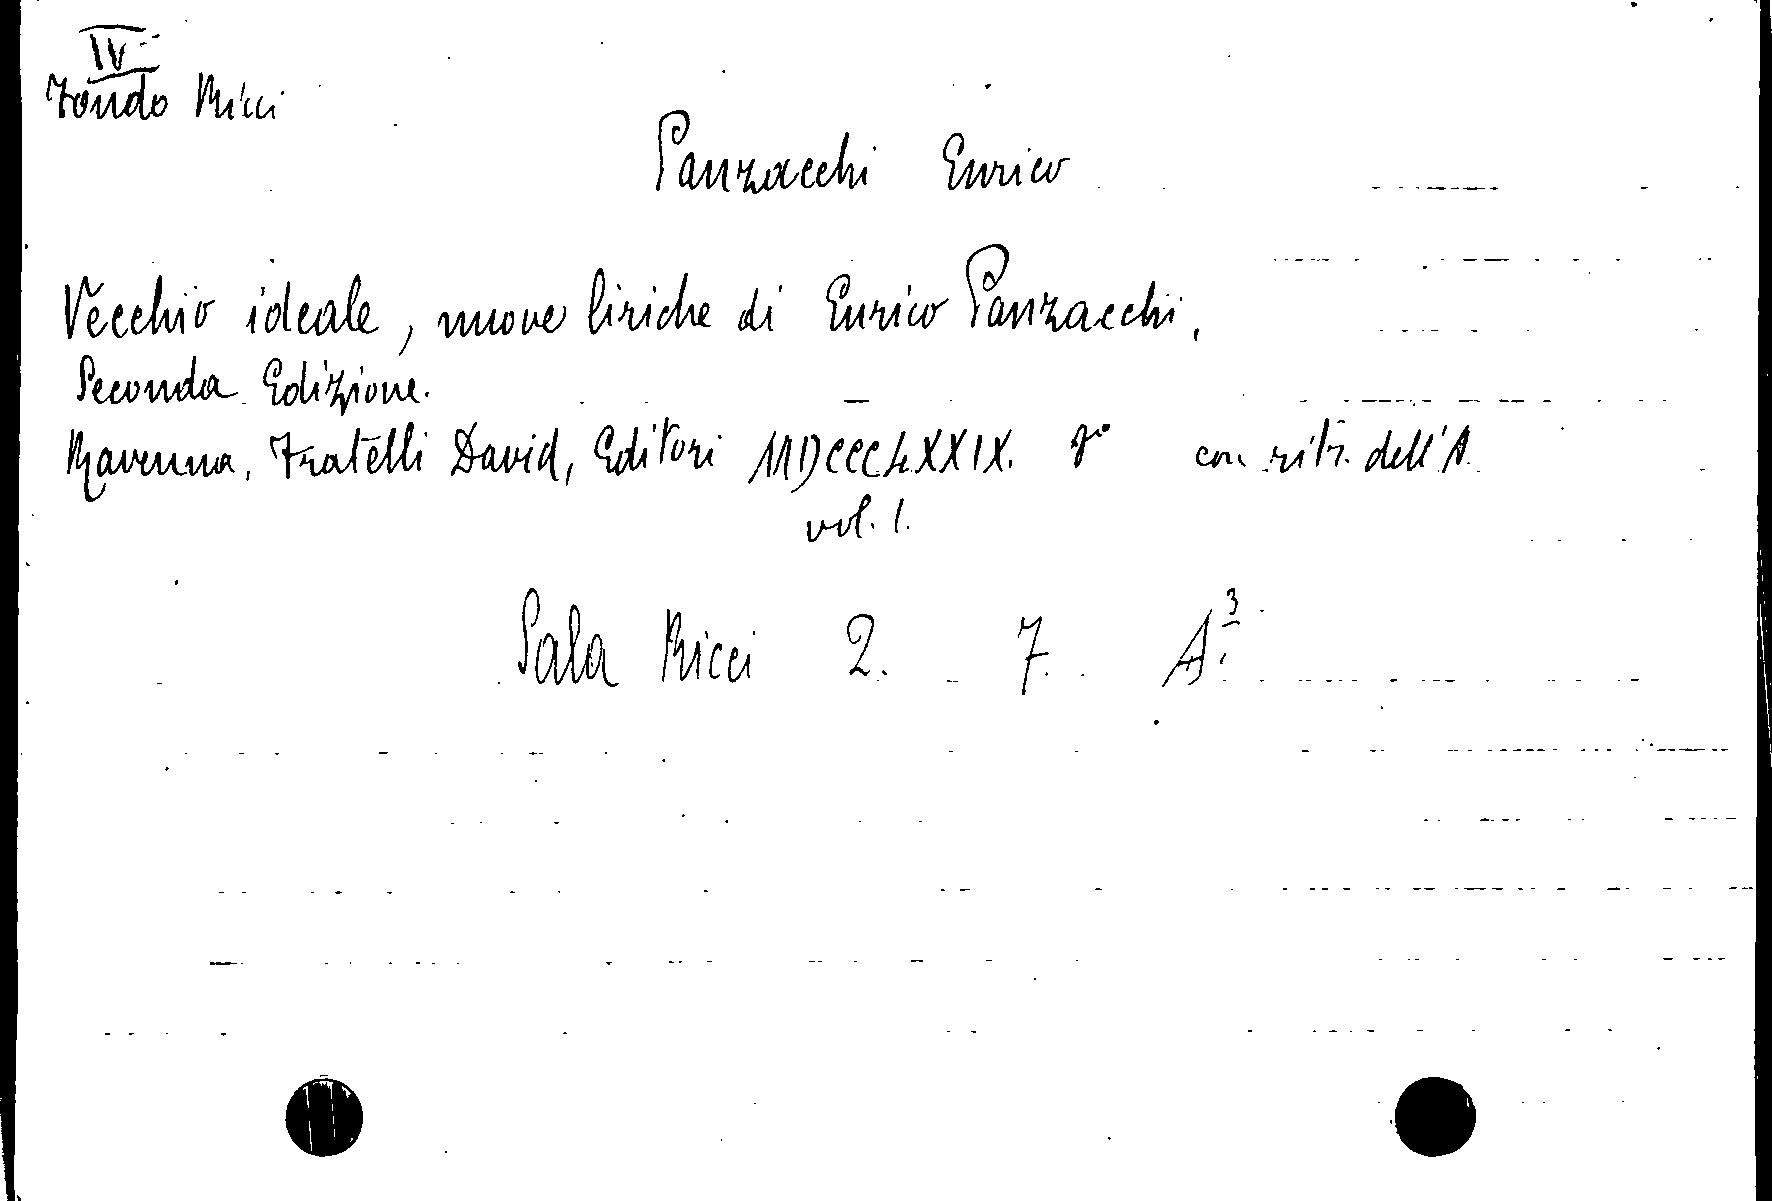 IV
Fondo Ricci
Panzacchi Enrico
Vecchio ideale, nuove liriche di Enrico Panzacchi,
Seconda Edizione.
Ravenna, Fratelli David, Editori MDCCCLXXIX. 8° con ritr. dell'A.
vol. 1.
Sala Ricci 2. 7. A.³